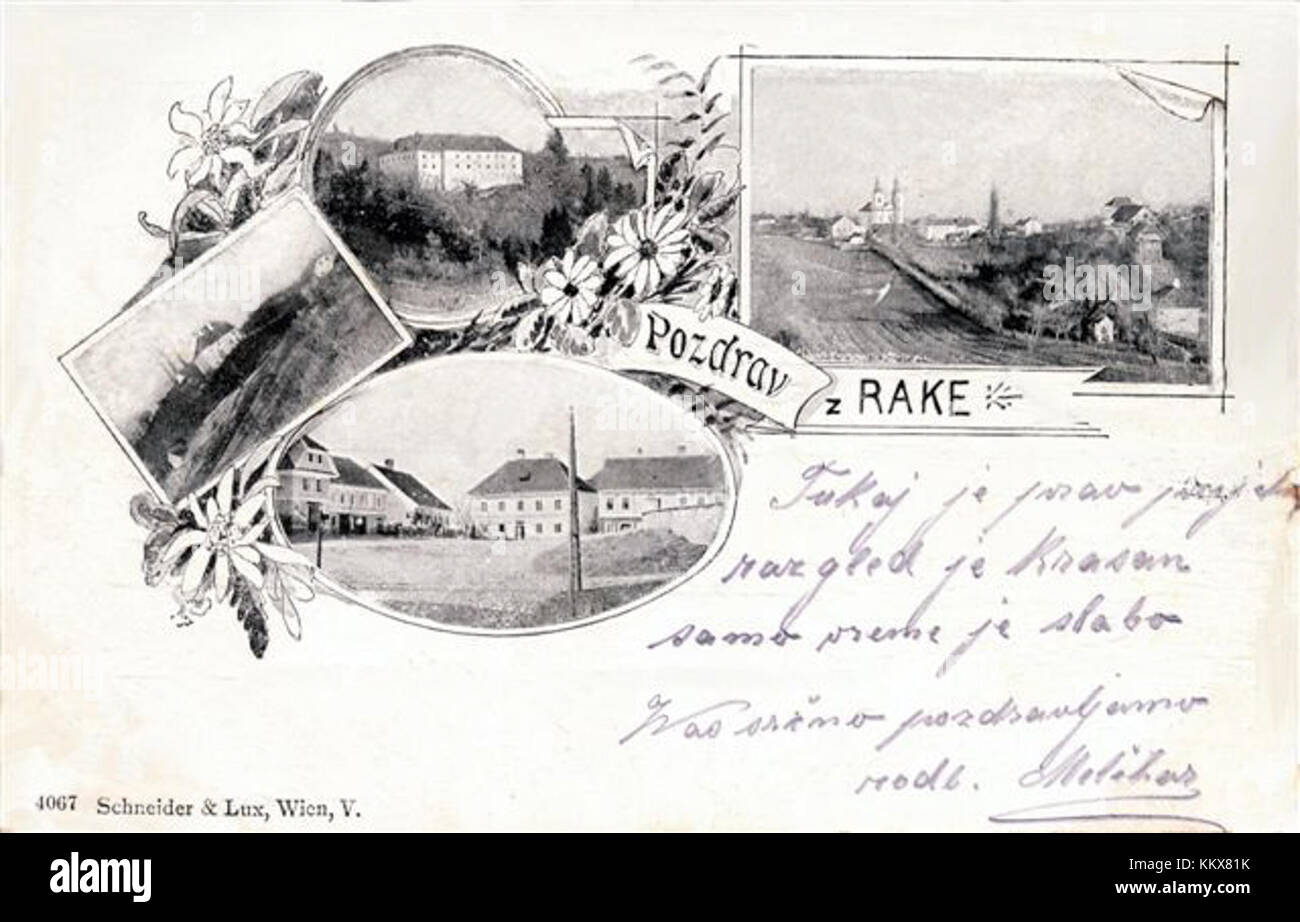 Pozdrav
z RAKE
Tukaj je prav
razgled je krasan
samo vreme je slabo
Vas srčno pozdravljamo
rodb. Melihar
4067 Schneider & Lux, Wien, V.
alamy
Image ID: KKX81K
www.alamy.com